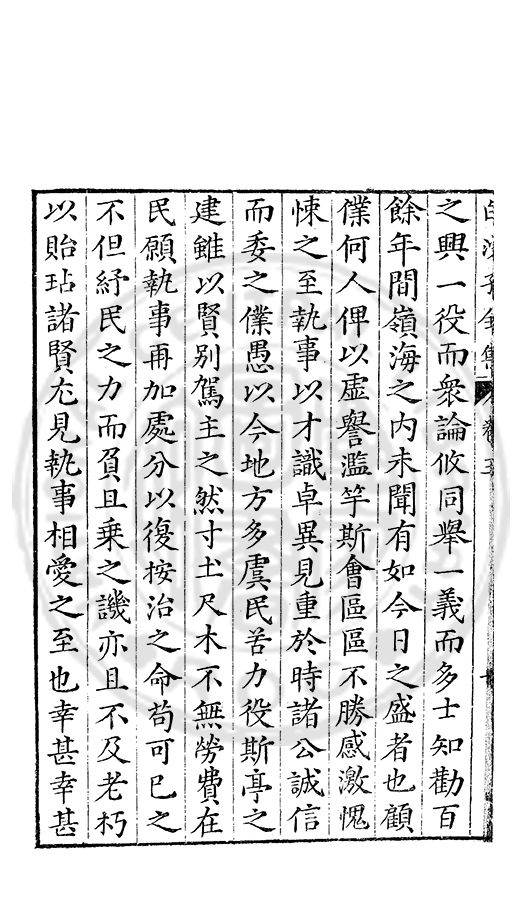 之興一役而衆論攸同舉一義而多士知勸百
餘年間嶺海之内未聞有如今日之盛者也顧
僕何人俾以虛譽濫竽斯會區區不勝感激愧
悚之至執事以才識卓異見重於時諸公誠信
而委之僕愚以今地方多虞民苦力役斯亭之
建雖以賢别駕主之然寸土尺木不無勞費在
民願執事再加處分以復按治之命苟可已之
不但紓民之力而負且乗之譏亦且不及老朽
以貽玷諸賢尤見執事相愛之至也幸甚幸甚